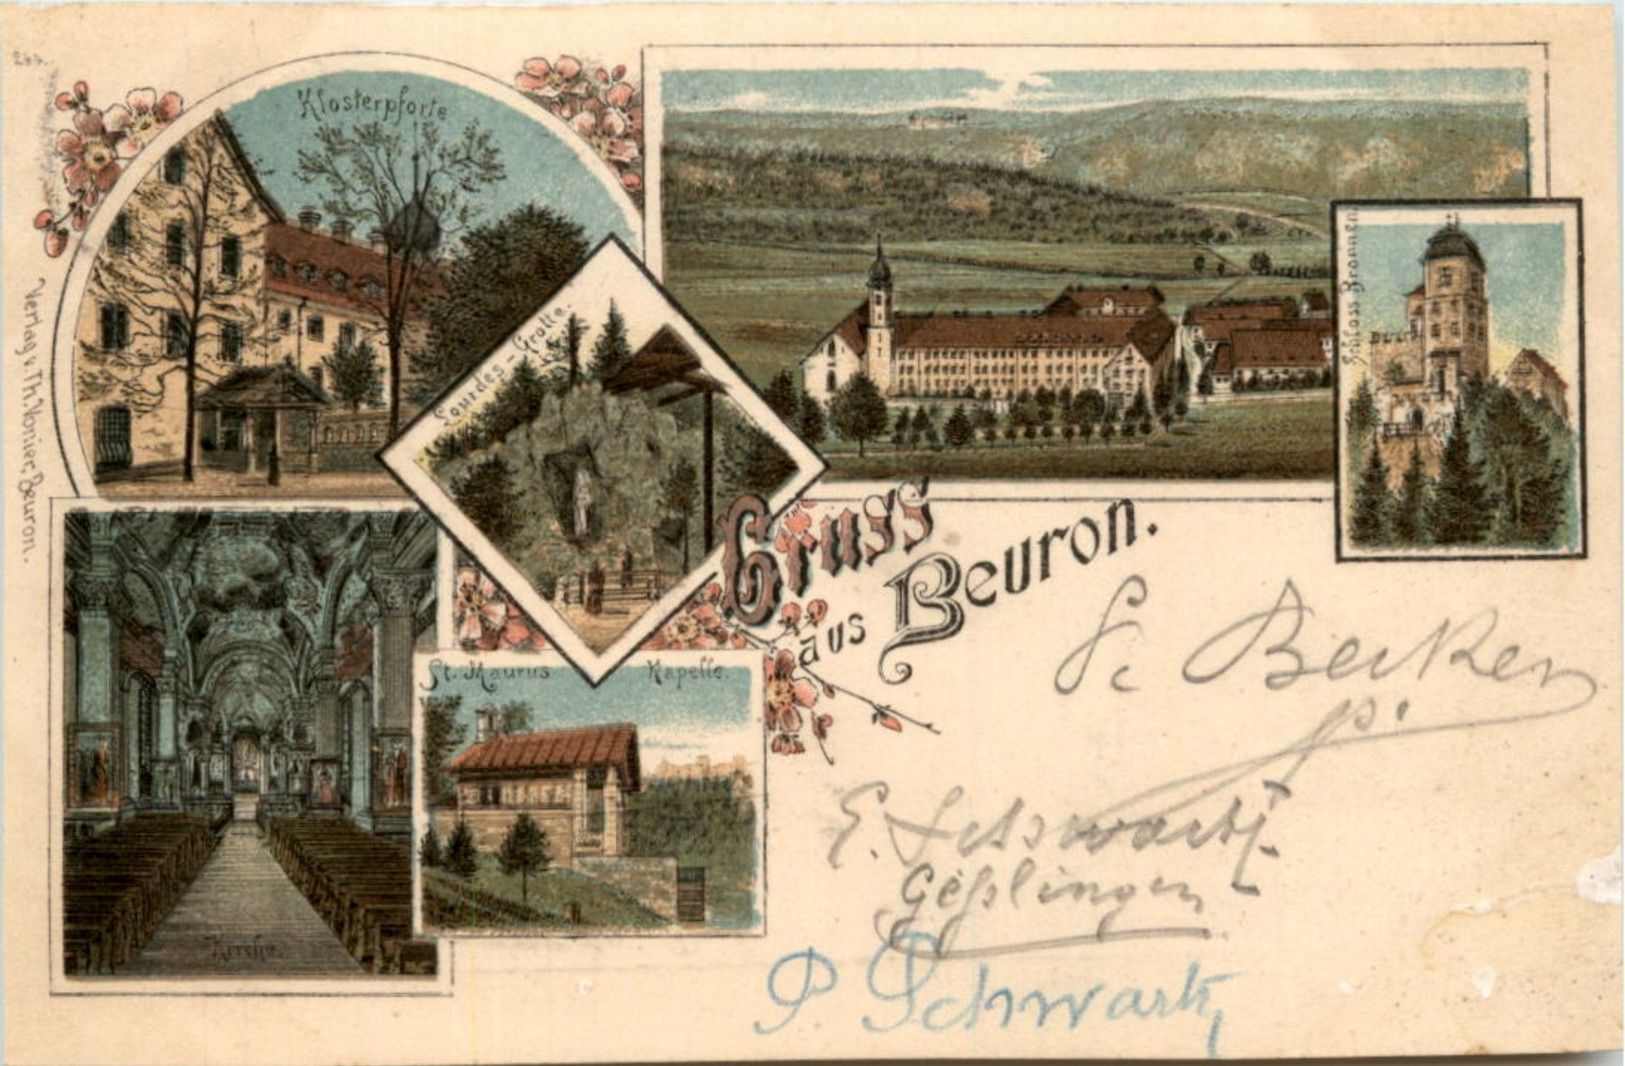 Klosterpforte
Lourdes-Grotte.
Schloss Bronnen.
Verlag v. Th. Wonier, Beuron.
Gruss
aus Beuron.
St. Maurus Kapelle.
Kirche.
E. Schwartz
P. Schwartz